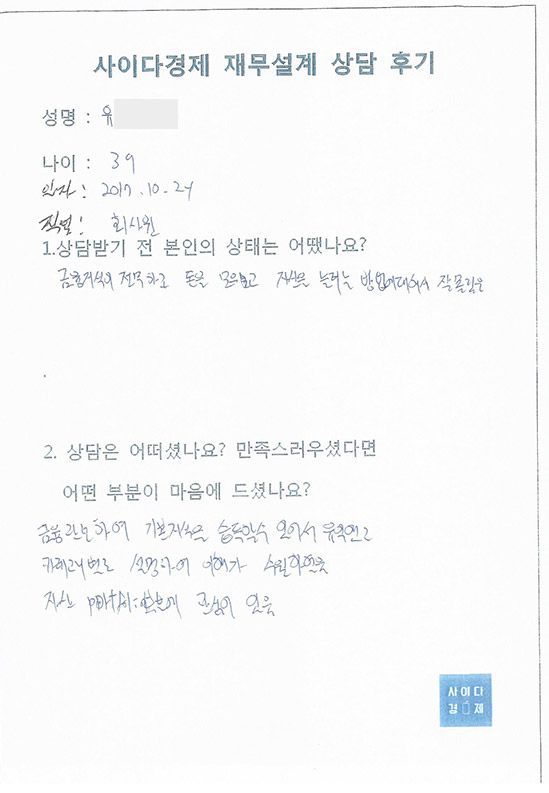 사이다경제 재무설계 상담 후기
성명 : 유
나이 : 39
일자 : 2017.10.24
직업 : 회사원
1.상담받기 전 본인의 상태는 어땠나요?
금융지식이 전무하고 돈을 모으고 자산을 늘리는 방법에대해서 잘모름
2. 상담은 어떠셨나요? 만족스러우셨다면
어떤 부분이 마음에 드셨나요?
금융관련하여 기본지식을 습득할수 있어서 유익했고
카테고리별로 설명하여 이해가 수월하였음
자산 에 관심이 있음
사이다
경제